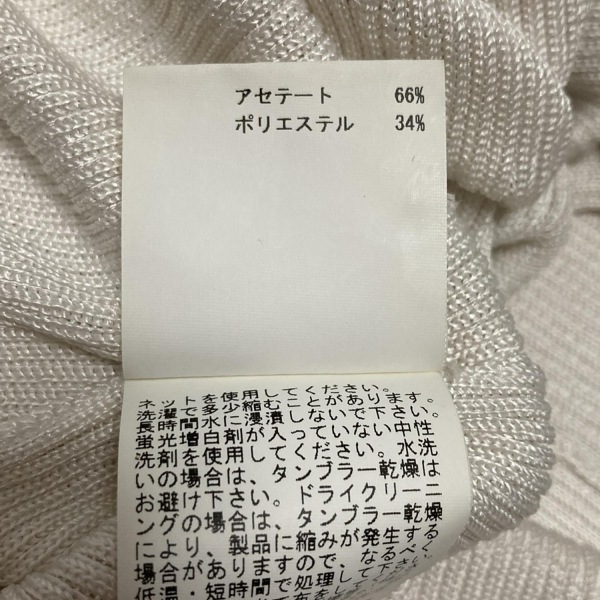 アセテート 66%
ポリエステル 34%
ネットを使用してください。
洗濯で多少縮むことがあります。
長時間水に浸漬しないで下さい。
蛍光増白剤が入っていない中性
洗剤を使用してください。水洗
いの場合は、タンブラー乾燥は
お避け下さい。ドライクリーニ
ングの場合は、タンブラー乾燥
により、製品に縮みが発生する
場合がありますので、なるべく
低温・短時間で処理して下さい。